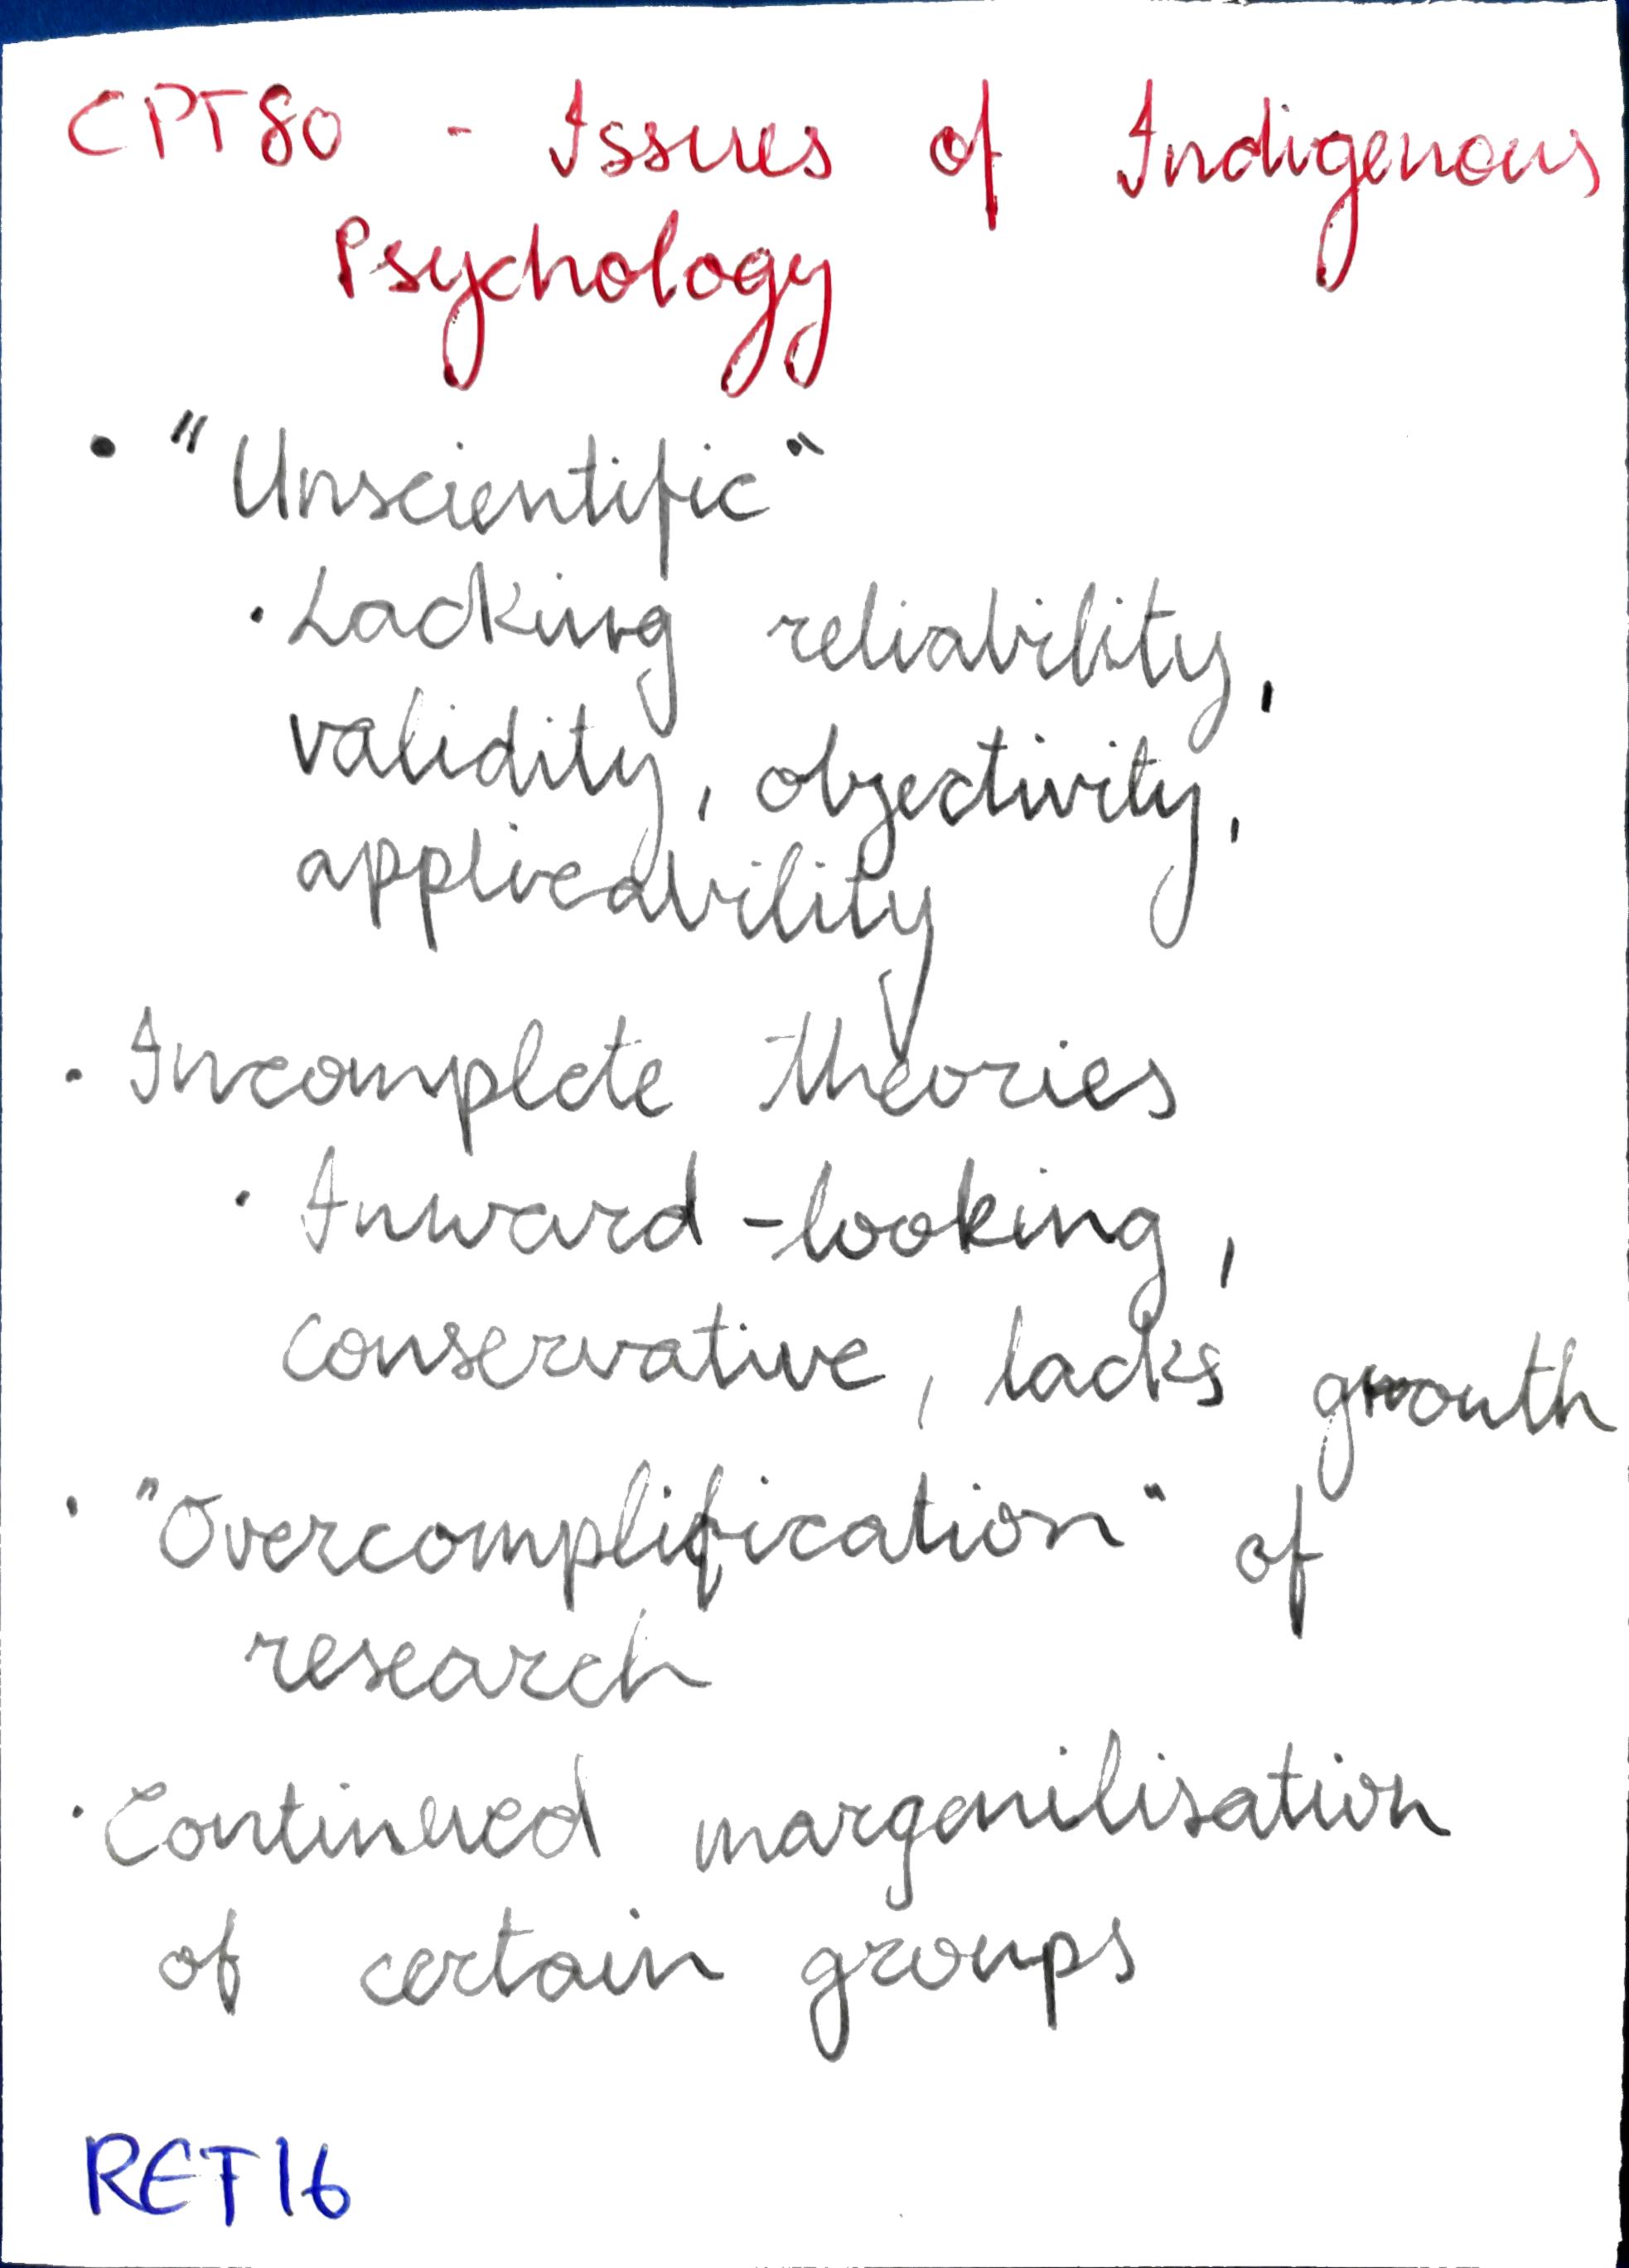 CPT80 - Issues of Indigenous
Psychology
• "Unscientific"
• Lacking reliability,
validity, objectivity,
applicability
• Incomplete theories
• Inward-looking,
conservative, lacks growth
• "Overcomplification" of
research
• Continued margenilisation
of certain groups
RET16